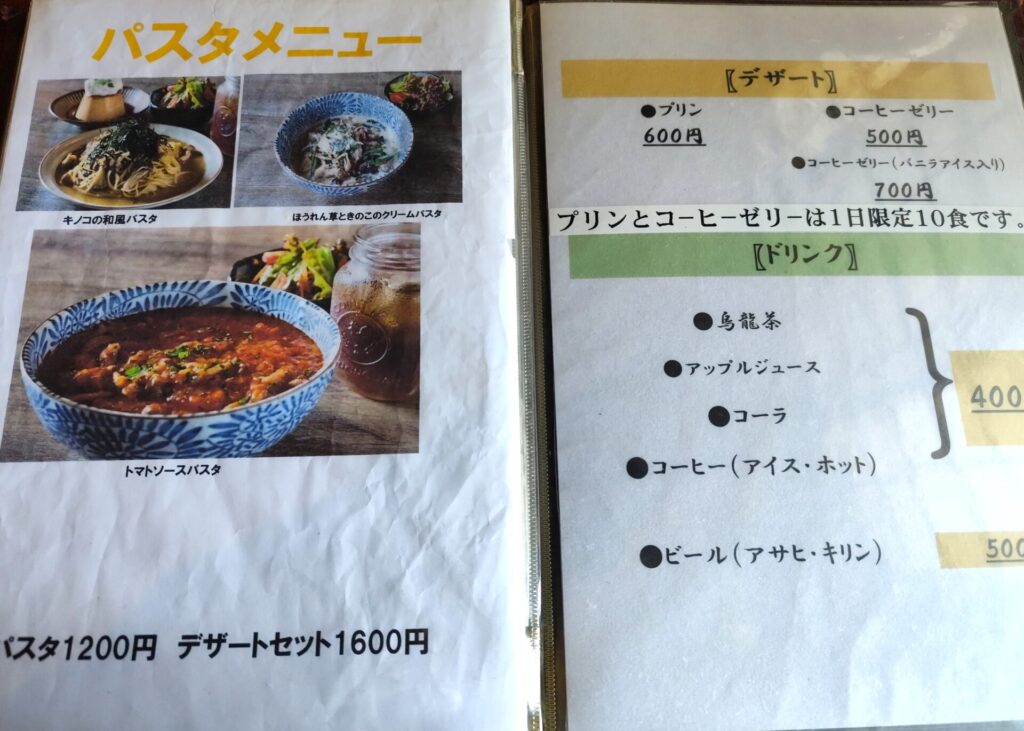 パスタメニュー
キノコの和風パスタ
ほうれん草ときのこのクリームパスタ
トマトソースパスタ
パスタ1200円 デザートセット1600円
〖デザート〗
●プリン
600円
●コーヒーゼリー
500円
●コーヒーゼリー(バニラアイス入り)
700円
プリンとコーヒーゼリーは1日限定10食です。
〖ドリンク〗
●烏龍茶
●アップルジュース
●コーラ
●コーヒー(アイス・ホット)
400
●ビール(アサヒ・キリン)
500